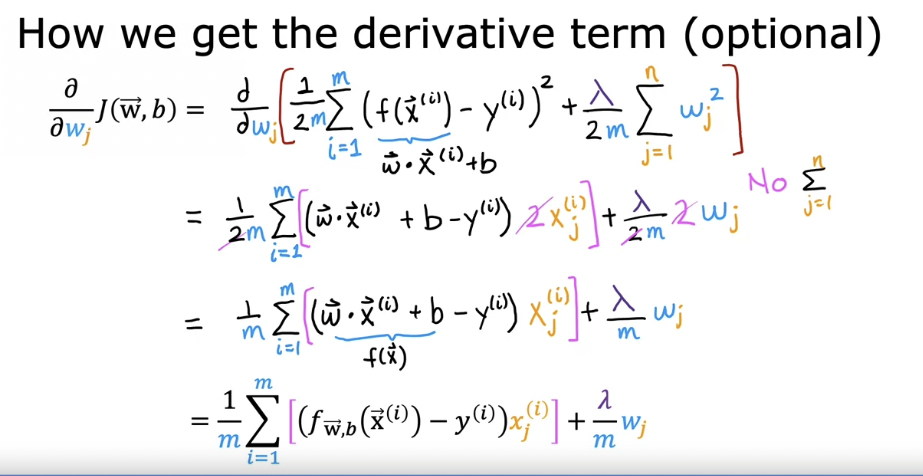 How we get the derivative term (optional)
∂/∂wⱼ J(w⃗, b) = d/dwⱼ [ 1/2m Σᵢ₌₁ᵐ (f(x⃗⁽ⁱ⁾) − y⁽ⁱ⁾)² + λ/2m Σⱼ₌₁ⁿ wⱼ² ]
w⃗ · x⃗⁽ⁱ⁾ + b
= 1/2m Σᵢ₌₁ᵐ [(w⃗ · x⃗⁽ⁱ⁾ + b − y⁽ⁱ⁾) 2xⱼ⁽ⁱ⁾] + λ/2m 2wⱼ No Σⱼ₌₁ⁿ
= 1/m Σᵢ₌₁ᵐ [(w⃗ · x⃗⁽ⁱ⁾ + b − y⁽ⁱ⁾) xⱼ⁽ⁱ⁾] + λ/m wⱼ
f(x⃗)
= 1/m Σᵢ₌₁ᵐ [(f_w⃗,b(x⃗⁽ⁱ⁾) − y⁽ⁱ⁾)xⱼ⁽ⁱ⁾] + λ/m wⱼ